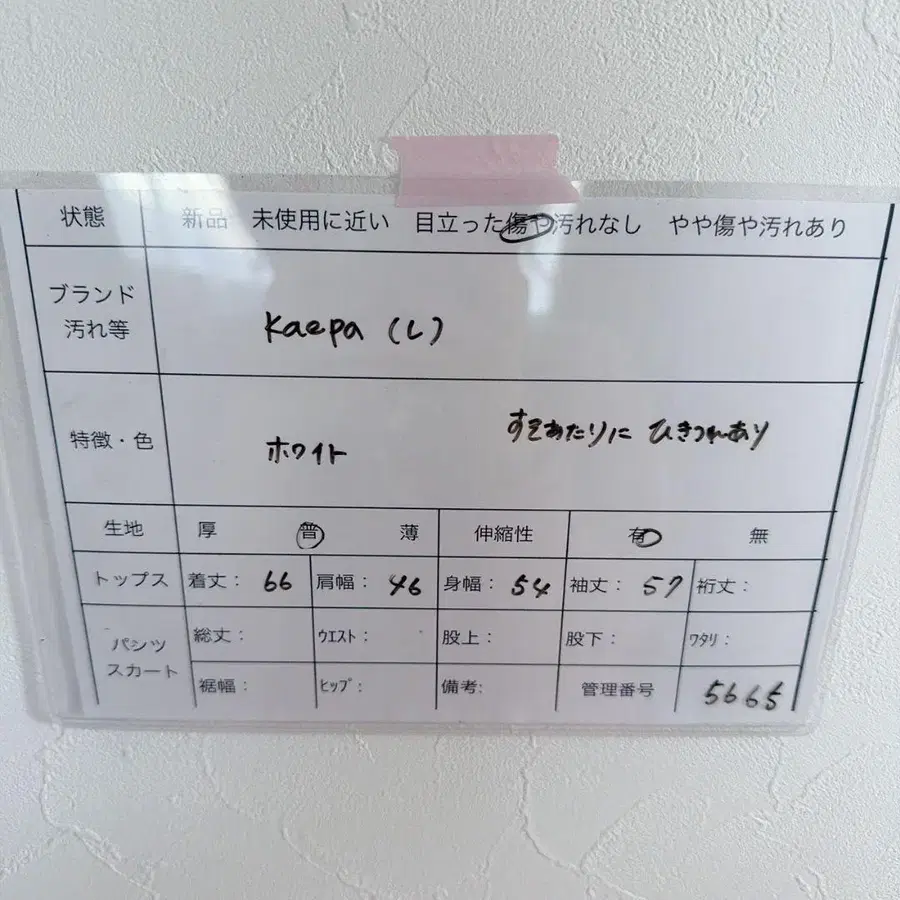 状態 新品 未使用に近い 目立った傷や汚れなし やや傷や汚れあり
ブランド
汚れ等
Kaepa (L)
特徴・色 ホワイト すそあたりに ひきつれあり
生地 厚 普 薄 伸縮性 有 無
トップス 着丈: 66 肩幅: 46 身幅: 54 袖丈: 57 裄丈:
パンツ
スカート
総丈: ウエスト: 股上: 股下: ワタリ:
裾幅: ヒップ: 備考: 管理番号 5665